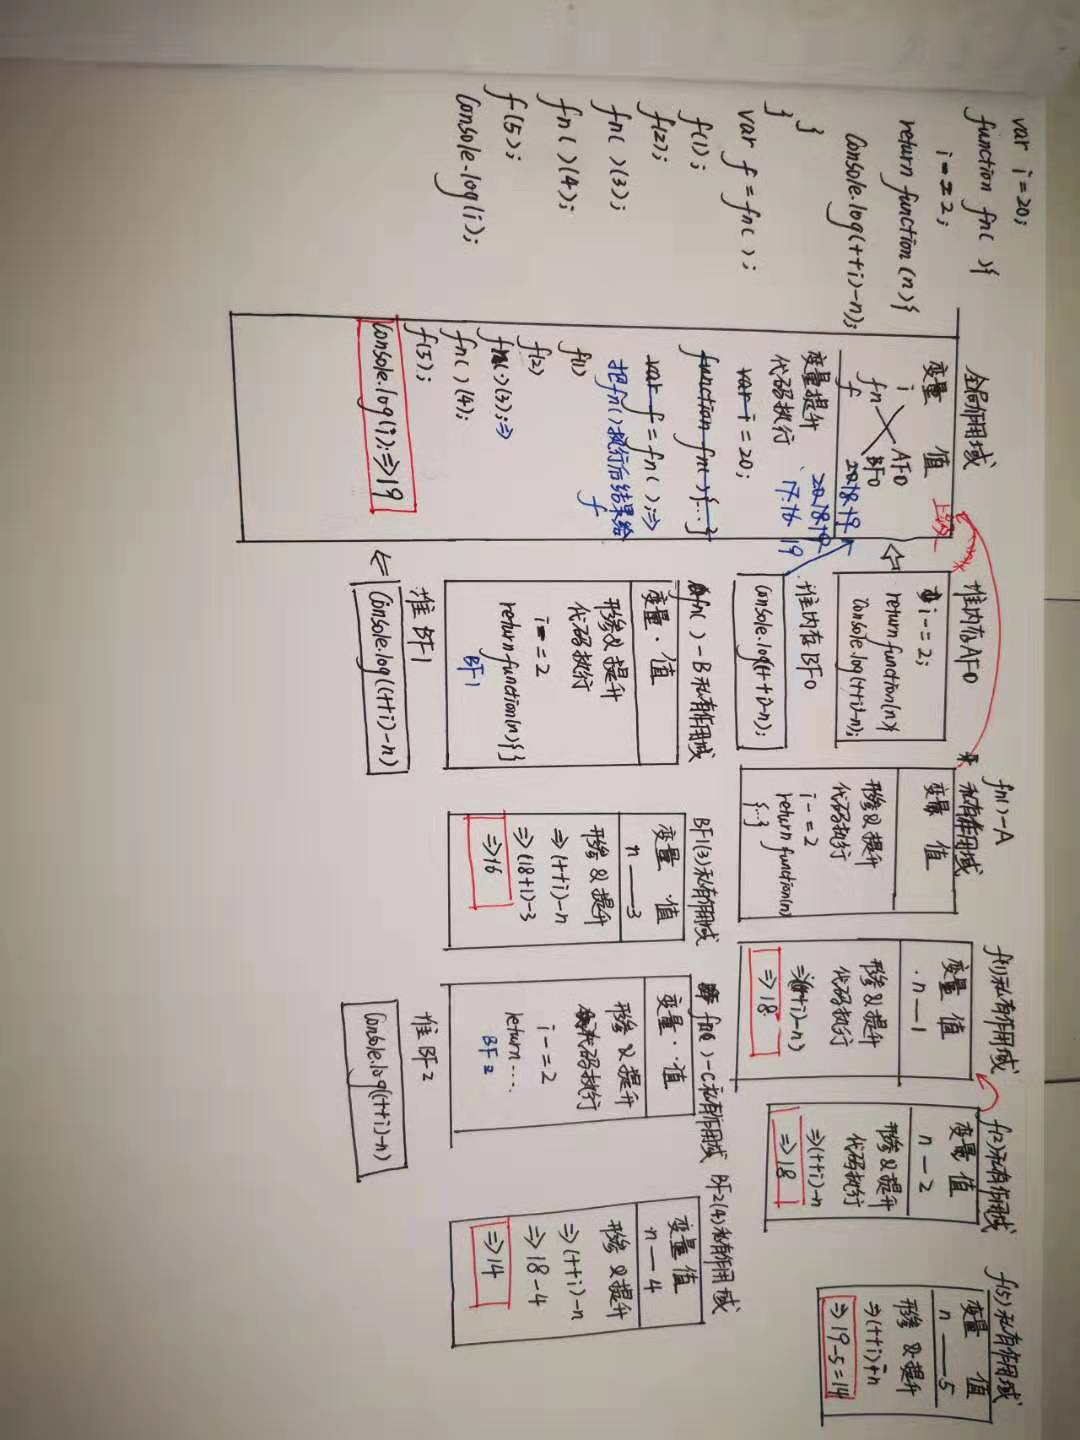 var i=20;
function fn( ){
i-=2;
return function(n){
Console.log((++i)-n);
}
}
var f = fn( );
f(1);
f(2);
fn( )(3);
fn( )(4);
f(5);
Console.log(i);
全局作用域
变量 值
i
fn AF0
f BF0
变量提升
代码执行
var i = 20;
function fn( ){...}
var f = fn( );=>
把fn()执行后结果给
f
f(1)
f(2)
fn( )(3);=>
fn( )(4);
f(5);
Console.log(i);=>19
堆内存AF0
i-=2;
return function(n){
Console.log(++i)-n);
堆内存BF0
Console.log((++i)-n);
fn()-A
私有作用域
变量 值
形参&提升
代码执行
i-=2
return function(n)
{...}
f(1)私有作用域
变量 值
n—1
形参&提升
代码执行
=>(++i)-n)
=>18
f(2)私有作用域
变量 值
n—2
形参&提升
代码执行
=>(++i)-n
=>18
f(5)私有作用域
变量 值
n—5
形参&提升
=>19-5=14
fn( )-B私有作用域
变量·值
形参&提升
代码执行
i-=2
return function(n){}
BF1
堆BF1
Console.log((++i)-n)
BF1(3)私有作用域
变量·值
n—3
形参&提升
=>(++i)-n
=>(18+1)-3
=>16
fn( )-C私有作用域
变量·值
形参&提升
代码执行
i-=2
return....
BF2
堆BF2
Console.log((++i)-n)
BF2(4)私有作用域
变量 值
n—4
形参&提升
=>(++i)-n
=>18-4
=>14